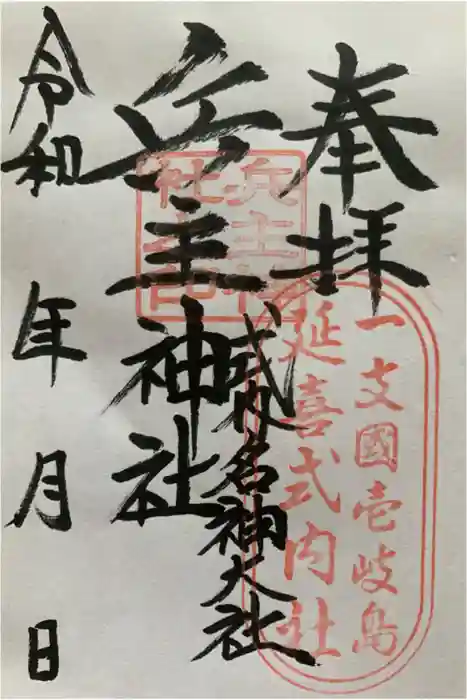 奉拝
一支國壱岐島
延喜式内社
式内名神大社
兵主神社
兵主神社之印
令和 年 月 日